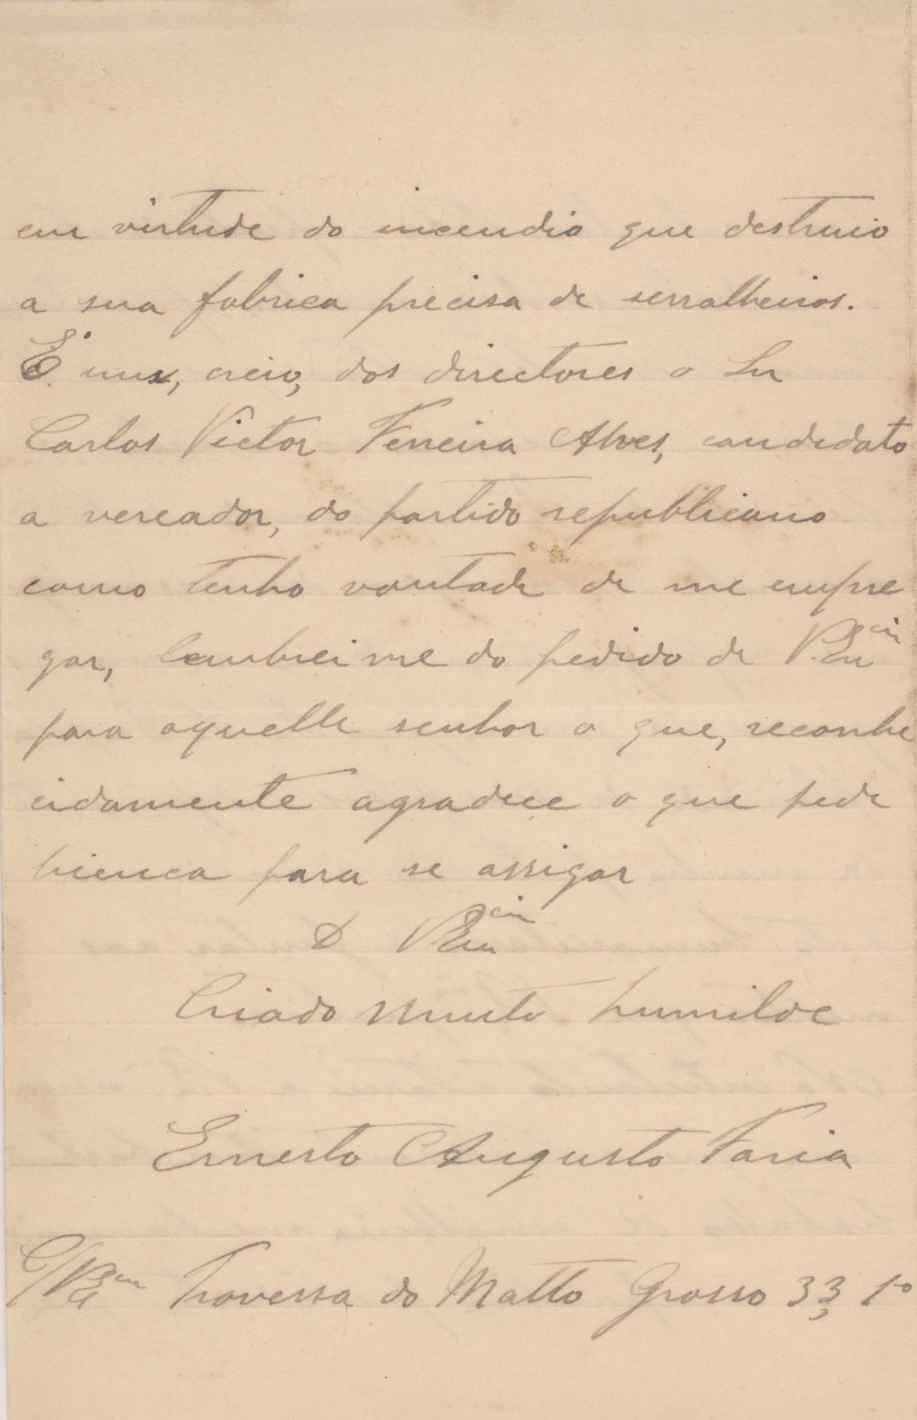 em virtude do incendio que destruio
a sua fabrica precisa de serralheiros.
É um, creio, dos directores o Snr
Carlos Victor Ferreira Alves, candidato
a vereador, do partido republicano
como tenho vontade de me empre
gar, lembrei me do pedido de V. Ex.cia
para aquelle senhor o que, reconhe
cidamente agradece o que pede
licença para se assignar
D V Ex.cia
Criado Muito humilde
Ernesto Augusto Faria
Travessa do Matto Grosso 33, 1º